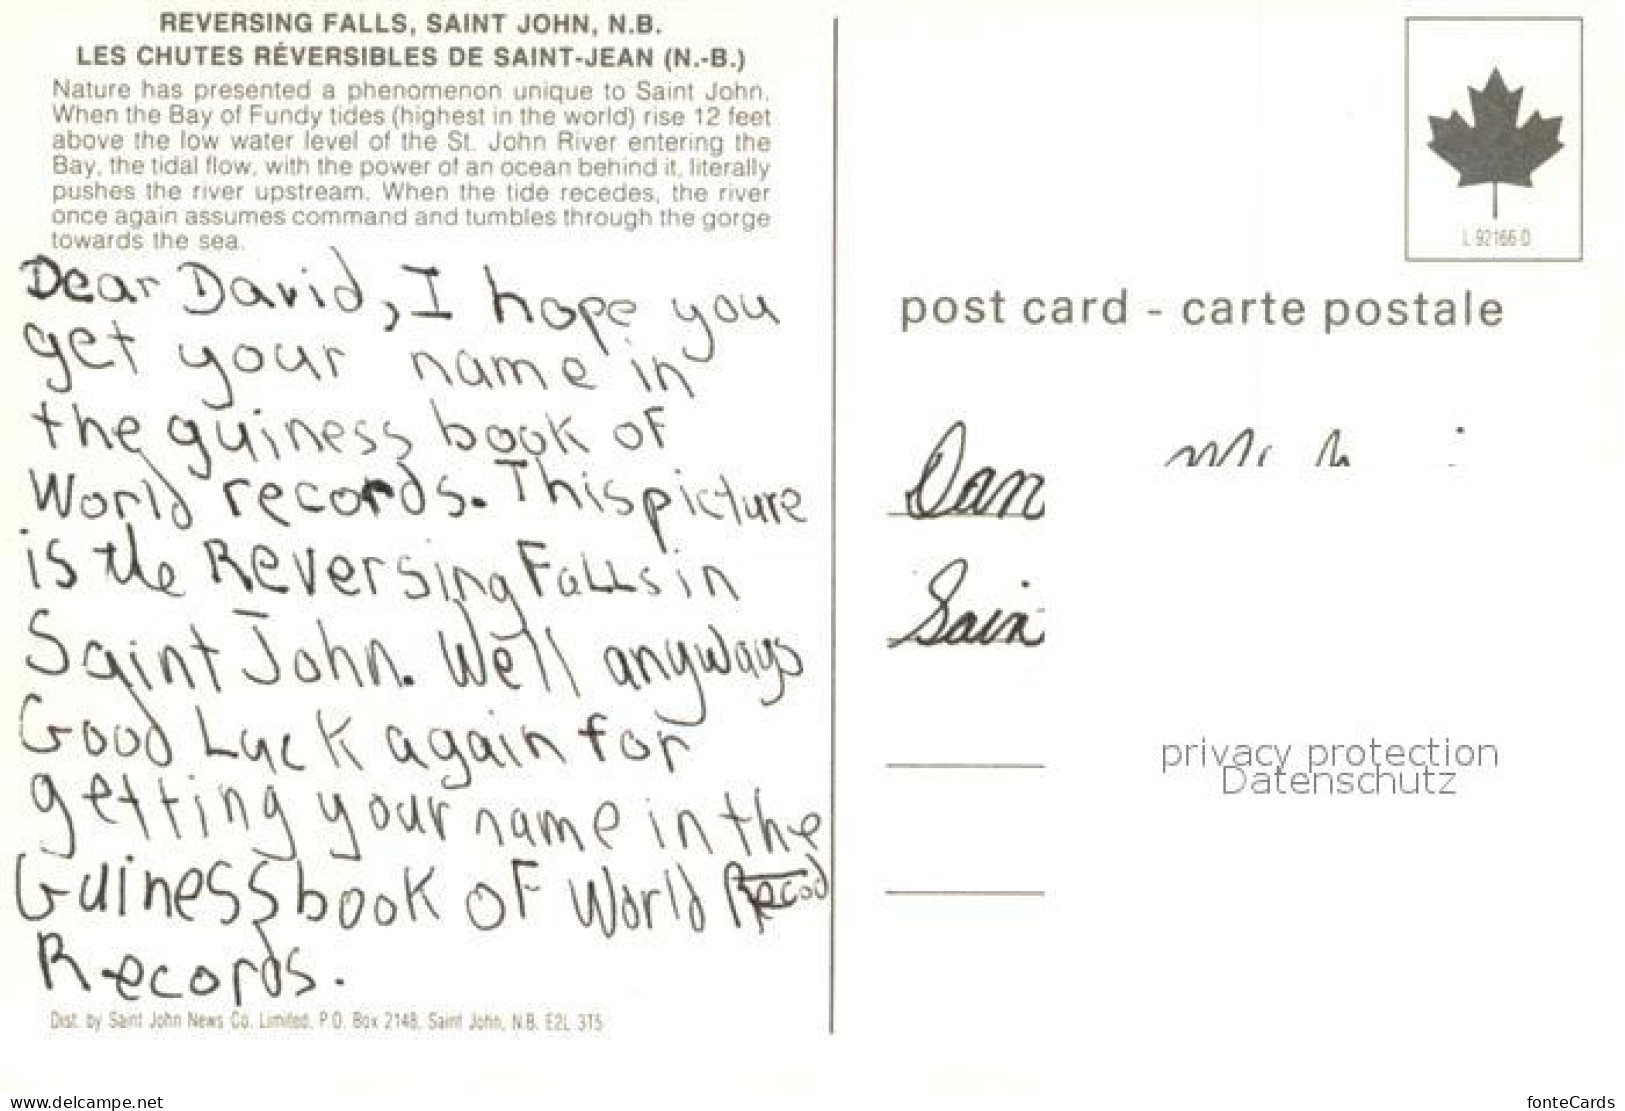 REVERSING FALLS, SAINT JOHN, N.B.
LES CHUTES RÉVERSIBLES DE SAINT-JEAN (N.-B.)
Nature has presented a phenomenon unique to Saint John.
When the Bay of Fundy tides (highest in the world) rise 12 feet
above the low water level of the St. John River entering the
Bay, the tidal flow, with the power of an ocean behind it, literally
pushes the river upstream. When the tide recedes, the river
once again assumes command and tumbles through the gorge
towards the sea.
Dear David, I hope you
get your name in
the guiness book of
World records. This picture
is the Reversing Falls in
Saint John. Well anyways
Good Luck again for
getting your name in the
Guiness book of World Recod
Records.
Dist. by Saint John News Co. Limited, P.O. Box 2148, Saint John, N.B. E2L 3T5
L-92166-D
post card - carte postale
Dan
Sain
privacy protection
Datenschutz
www.delcampe.net
fonteCards